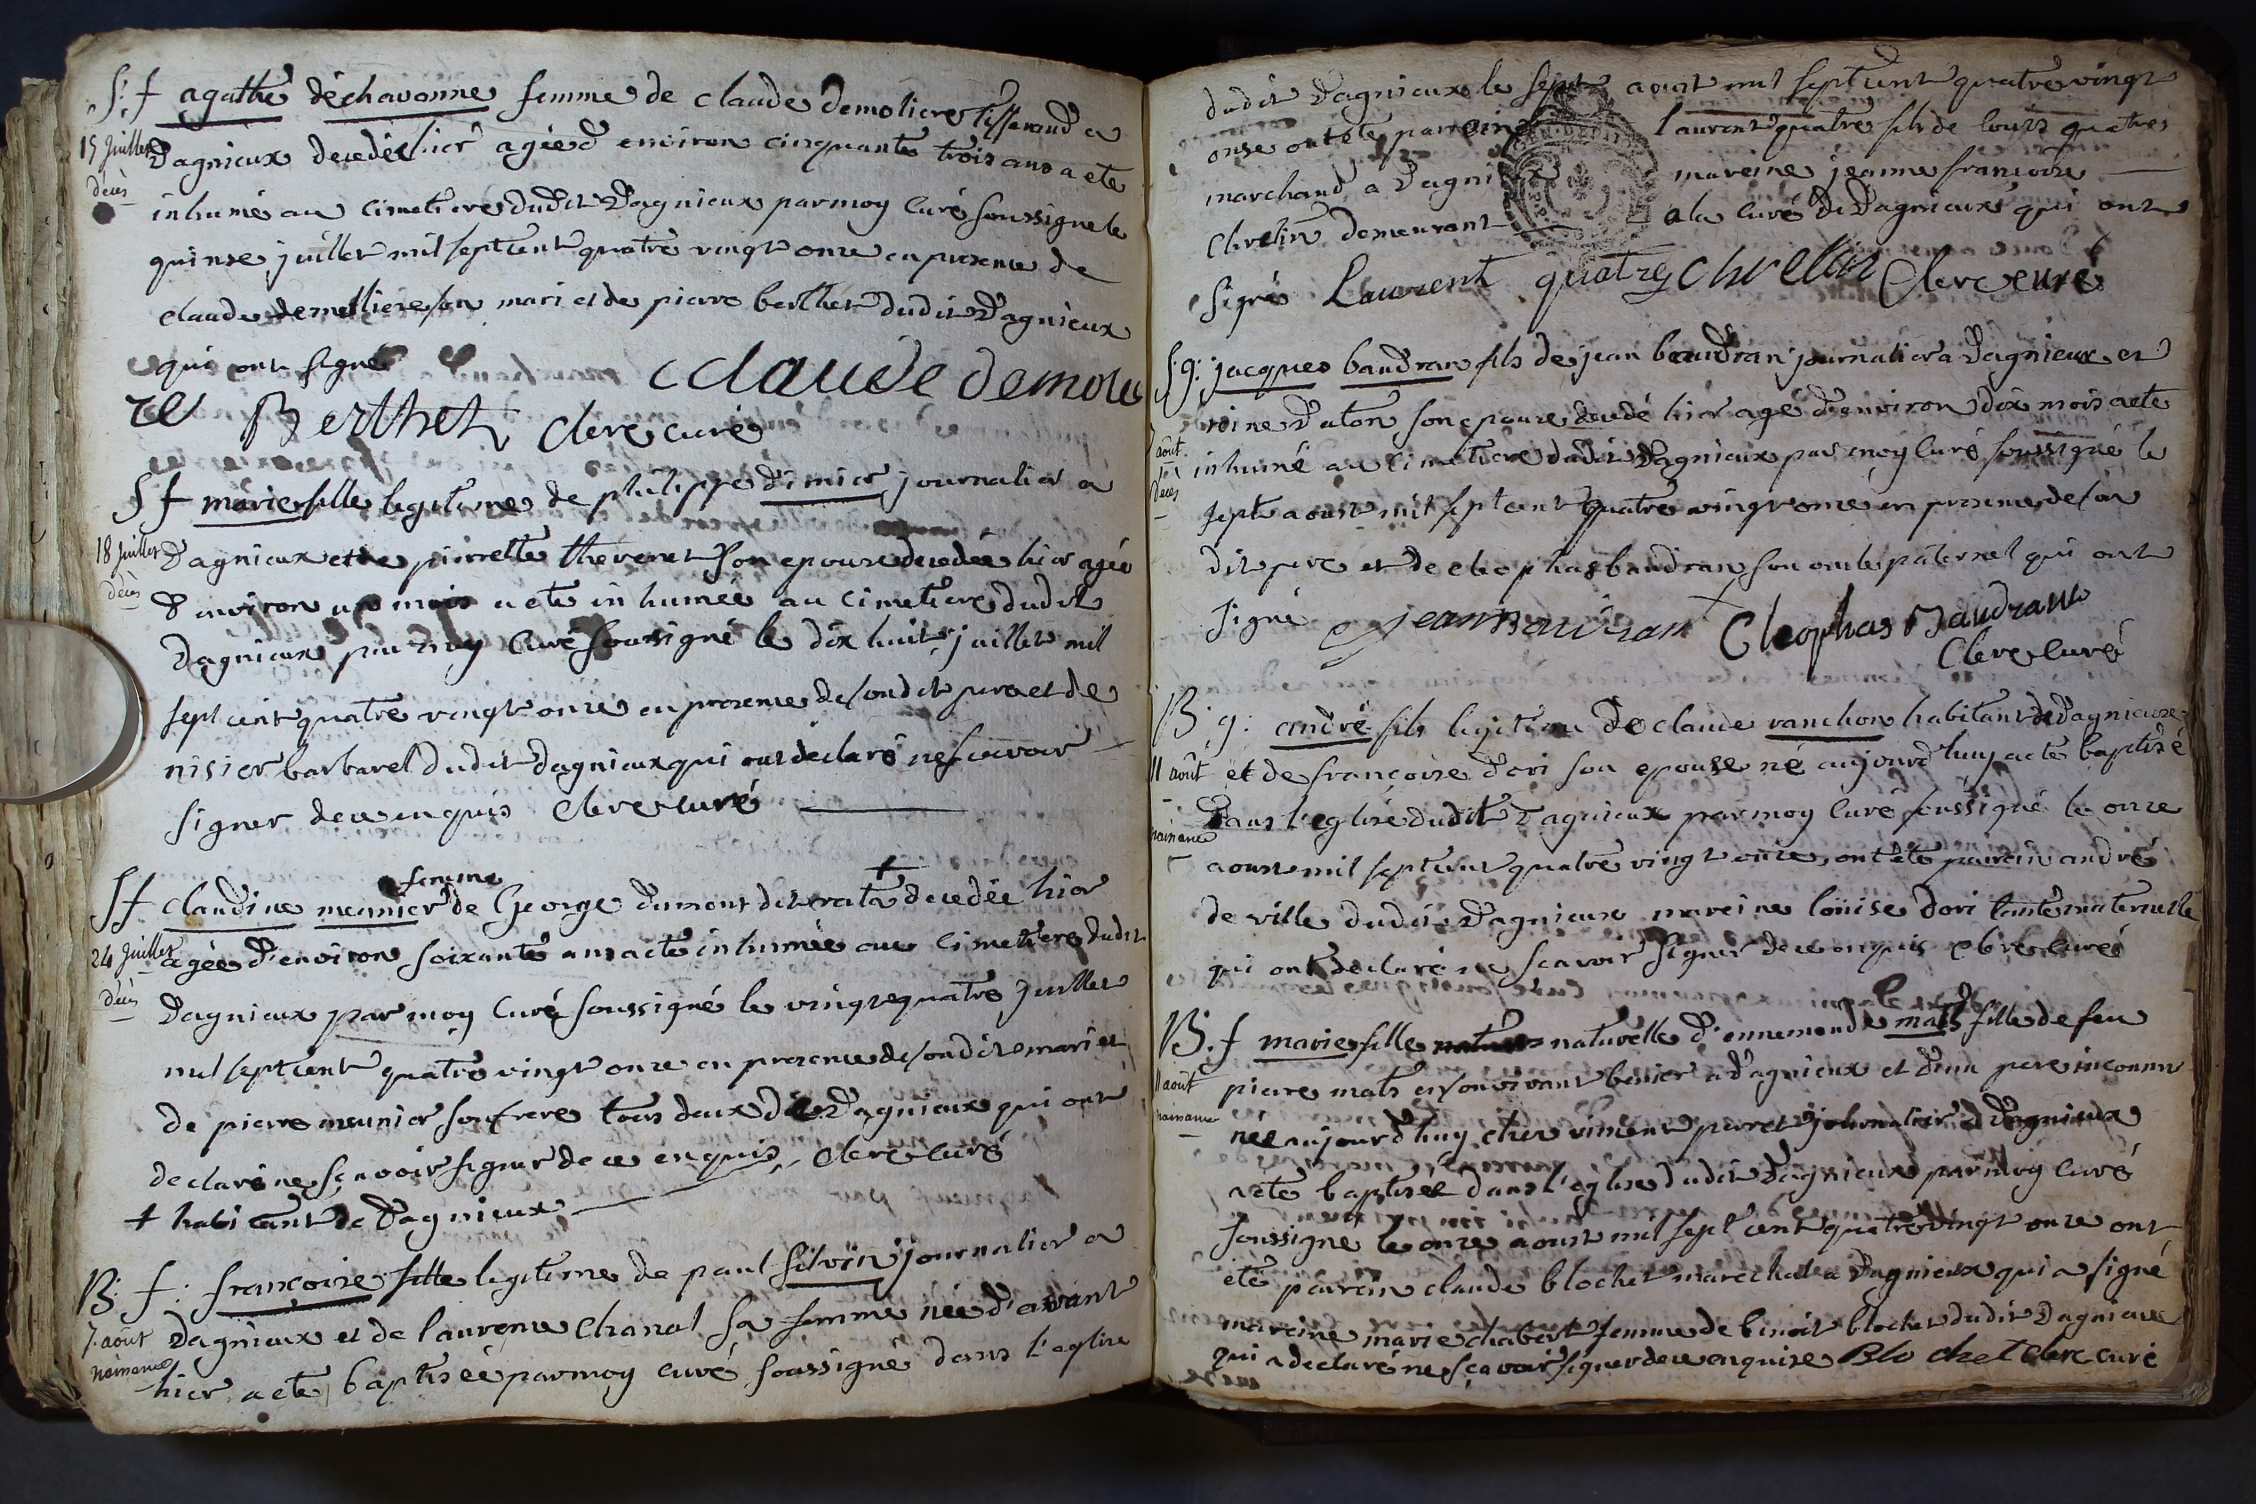 S: f agathe déchavanne femme de claude demoliere tisserand a
15 Juillet
décès
Dagnieux decedée hier agée d environ cinquante trois ans a ete
inhumé au cimetiere dudit Dagnieux par moy curé soussigné le
quinse juillet mil sept cent quatre vingt onze en presence de
claude demolliere son mari et de pierre berthet dudit Dagnieux
qui ont signé claude demolie
re Berthet clerc curé
S f marie fille legitime de philippe dimier journalier a
18 Juillet
décès
Dagnieux et de pierrette thevenet son epouse decedée hier agée
d environ un mois a ete inhumée au cimetiere dudit
Dagnieux par moy curé soussigné le dix huit juillet mil
sept cent quatre vingt onze en presence de son dit pere et de
nisier barbaret dudit Dagnieux qui ont declaré ne scavoir
signer de ce enquis Clerc curé
femme
S f claudine meunier de George dumont dit rata + decedée hier
24 Juillet
décès
agée d'environ soixante ans a ete inhumée au cimetiere dudit
Dagnieux par moy curé soussigné le vingt quatre Juillet
mil sept cent quatre vingt onze en presence de son dit mari et
de pierre meunier son frere tous deux de Dagnieux qui ont
declaré ne sçavoir signer de ce enquis Clerc curé
+ habitant de Dagnieux
B. f: françoise fille legitime de paul silvin journalier a
7. août
naissance
Dagnieux et de laurence Chanal sa femme née d'avant
hier a ete baptisée par moy curé soussigné dans l'eglise
dudit Dagnieux le sept aoust mil sept cent quatre vingt
onse ont ete parrein laurent quatre fils de louis quatre
marchand a Dagnieux mareine jeanne francoise
Chrelin demeurant a la cure de Dagnieux qui ont
signé Laurent quatre Chrellin Clerc curé
S. g: jacques baudran fils de jean baudran journalier a Dagnieux et
reine Daton son epouse decedé hier agé d'environ dix mois a ete
7 août
décès
inhumé au cimetiere dudit Dagnieux par moy curé soussigné le
sept aoust mil sept cent quatre vingt onze en presence de son
dit pere et de cleophas baudran son oncle paternel qui ont
signé jean Baudran Cleophas Baudran
Clerc curé
B. g: andré fils legitime de claude ranchon habitant de Dagnieux
11 août
naissance
et de françoise dori son epouse né aujourd'huy a ete baptisé
dans l'eglise dudit Dagnieux par moy curé soussigné le onze
aoust mil sept cent quatre vingt onze, ont ete parrain andré
de ville dudit Dagnieux mareine loüise dori tante maternelle
qui ont declaré ne scavoir signer de ce enquis Clerc curé
B. f marie fille naturelle d'ennemonde mats fille de feu
11 août
naissance
pierre mats en son vivant benier a Dagnieux et d'un pere inconnu
née aujourd'huy chez vincent peret journalier a Dagnieux
a ete baptisée dans l'eglise dudit Dagnieux par moy curé
soussigné le onze aoust mil sept cent quatre vingt onze ont
ete parrein claude blochet marechal a Dagnieux qui a signé
mareine marie chabert femme de benoit blochet dudit Dagnieux
qui a declaré ne sçavoir signer de ce enquise Blochet clerc curé